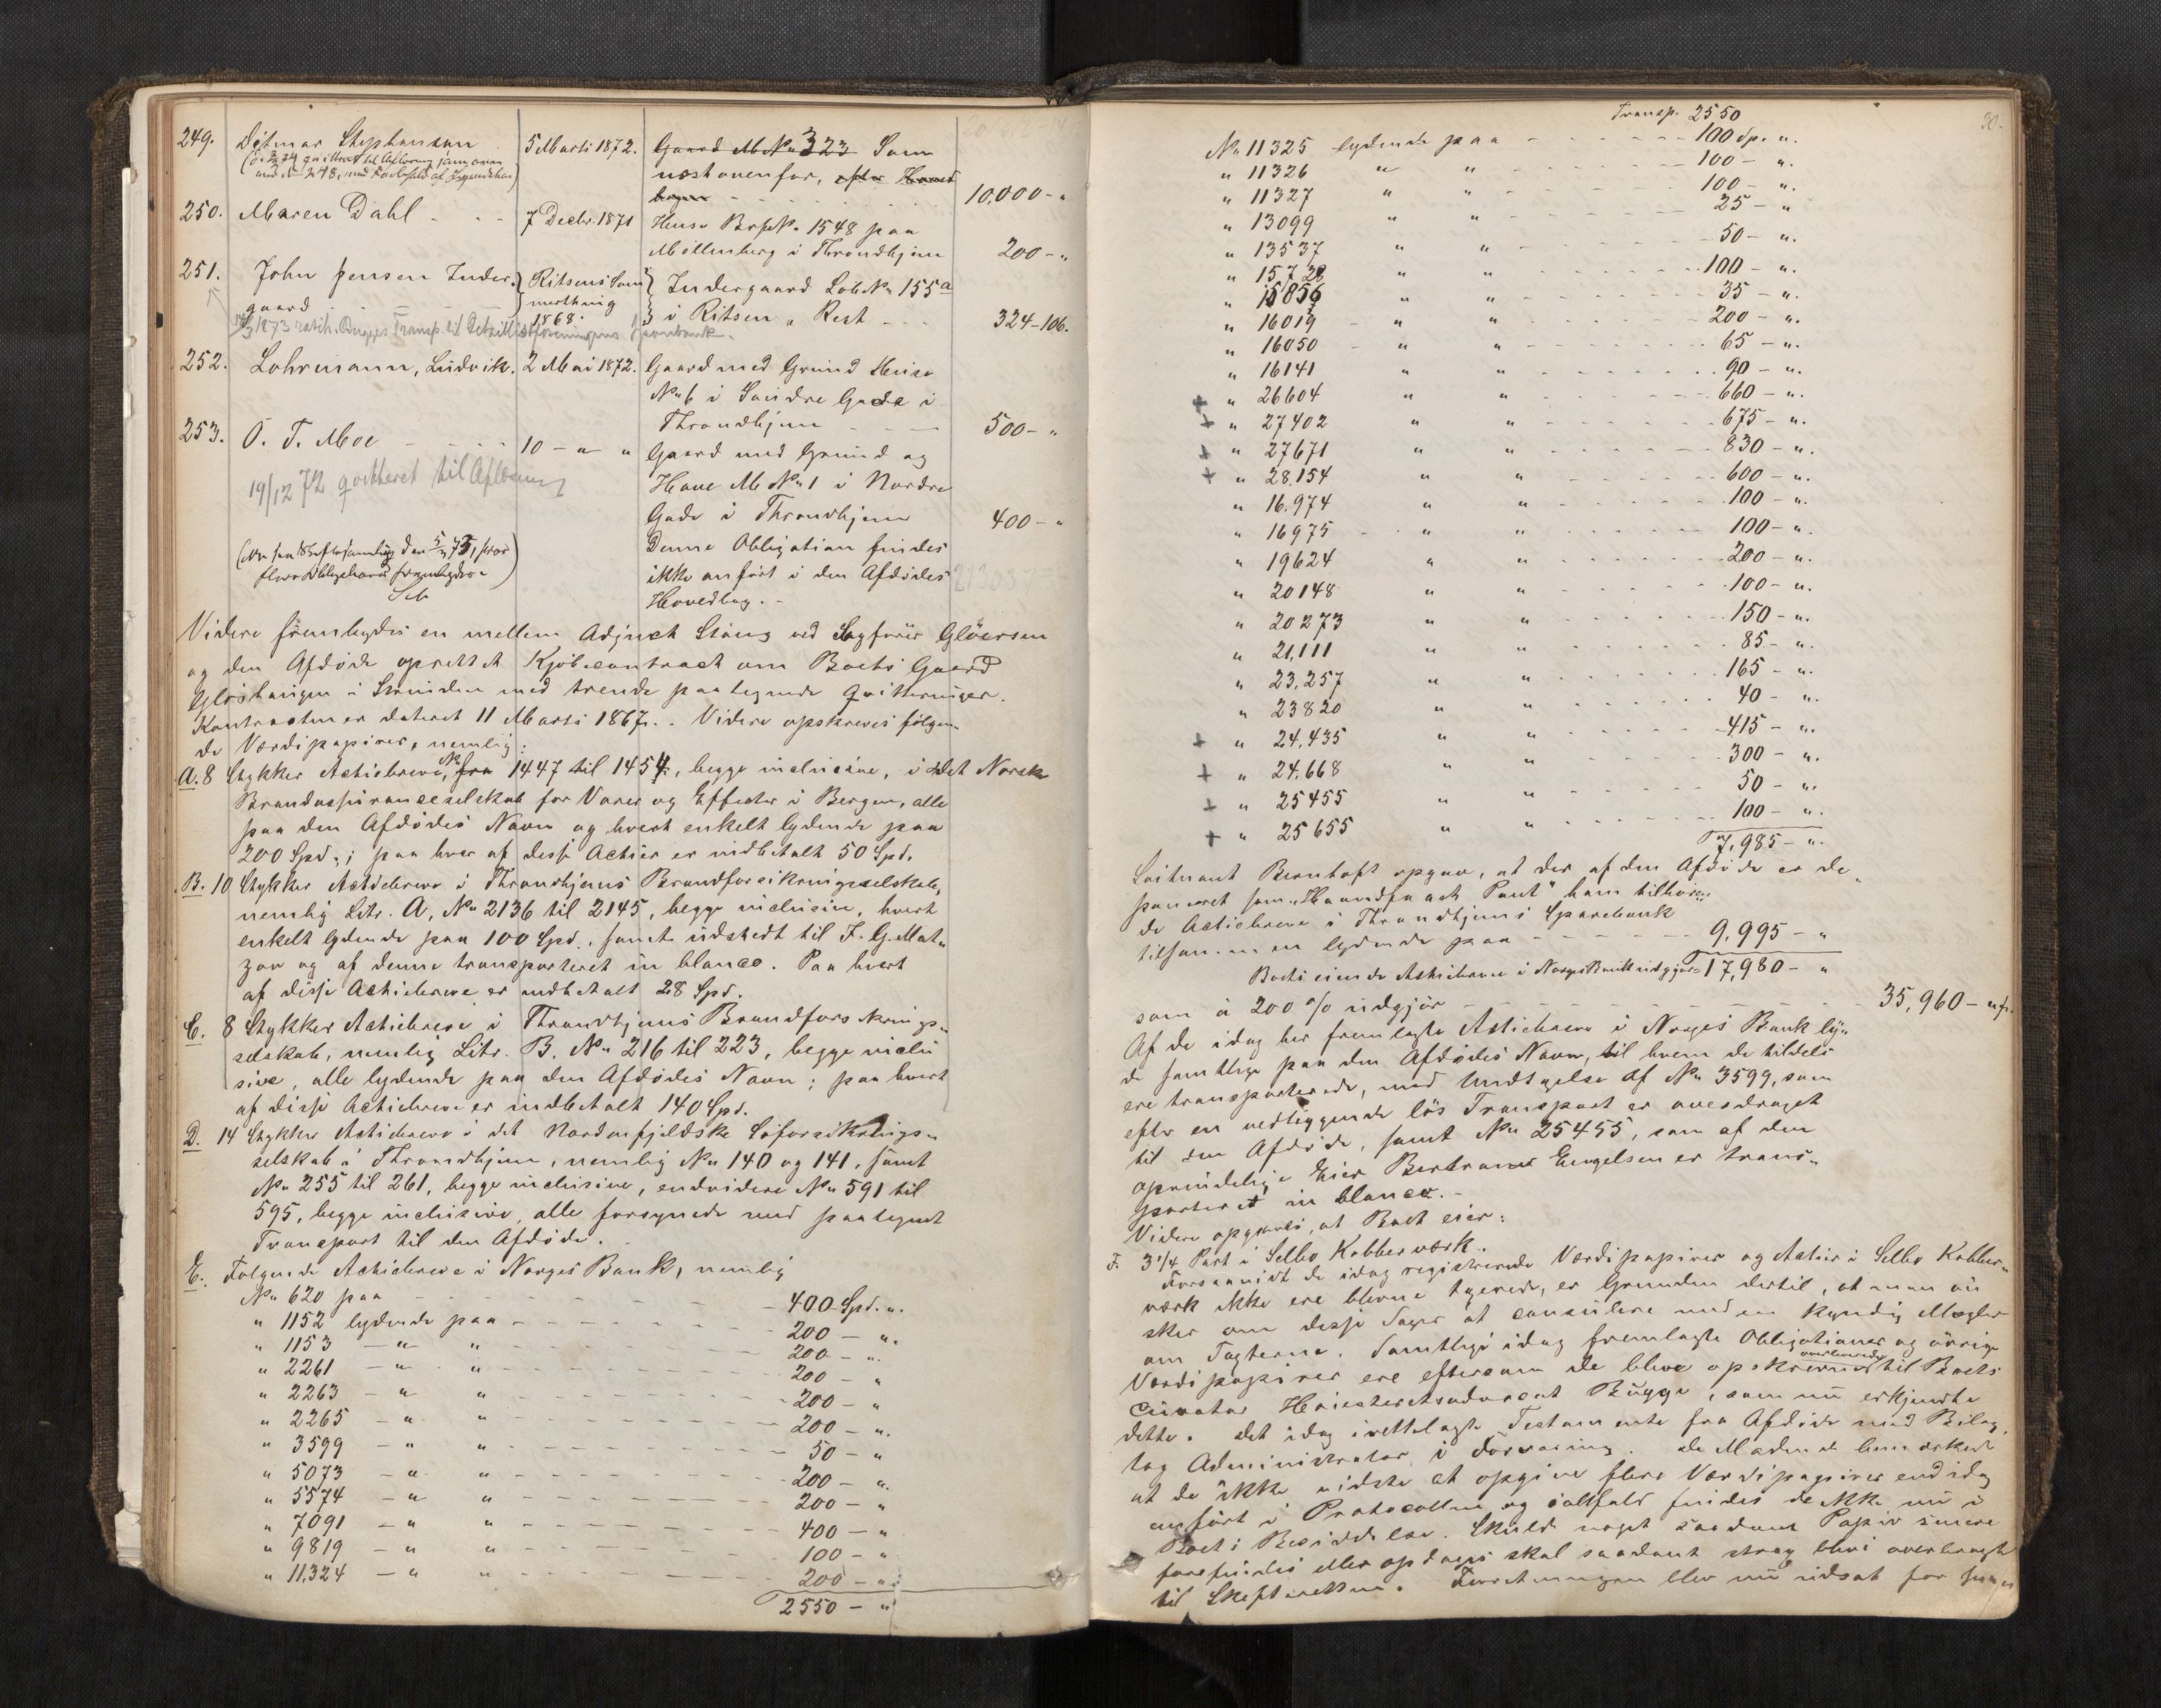 249. Ditmar Stephansen 5 Marti 1872. Gaard M No 323 Som
næst ovenfor, efter
10,000 - "
250. Maren Dahl - - - 7 Decbr. 1871 Huus No 1548 paa
Möllenberg i Throndhjem 200 - "
251. John Jensen Inder- Ritsens Indergaard Löb No 155a
gaard 1868. i Ritsen, Rest - - - 324-106.
252. Lohrmann, Ludvik. 2 Mai 1872. Gaard med Grund Huus
No 6 i Søndre Gade i
Throndhjem - - - 500 - "
253. O. T. Moe - - - 10 - " - " Gaard med Grund og
19/12 72 qvitteret til Aflæsning
Have M No 1 i Nordre
Gade i Throndhjem 400 - "
Denne Obligation findes
ikke anført i den Afdødes
Hovedbog. -
Videre fremlagdes en mellem Adjunct Stang ved Sagfører Glöersen
og den Afdøde oprettet Kjøbecontract om Boets Gaard
i Strinden med trende paategnede Qvitteringer.
Kontracten er dateret 11 Marts 1867. - Videre opskreves følgen-
de Værdipapirer, nemlig:
A. 8 Stykker Actiebreve, No fra 1447 til 1454, begge inclusive, i det Norske
Brandassuranceselskab for Varer og Effecter i Bergen, alle
paa den Afdødes Navn og hvert enkelt lydende paa
200 Spd.; paa hver af disse Actier er indbetalt 50 Spd.
B. 10 Stykker Actiebreve i Throndhjems Brandforsikringsselskab,
nemlig Litr. A, No 2136 til 2145, begge inclusive, hvert
enkelt lydende paa 100 Spd., samt udstedt til F. G. Mat-
zov og af denne transporteret in blanco. Paa hvert
af disse Actiebreve er indbetalt 28 Spd.
C. 8 Stykker Actiebreve i Throndhjems Brandforsikrings-
selskab, nemlig Litr. B. No 216 til 223, begge inclu
sive, alle lydende paa den Afdødes Navn; paa hvert
af disse Actiebreve er indbetalt 140 Spd.
D. 14 Stykker Actiebreve i det Nordenfjeldske Söforsikrings-
selskab i Throndhjem, nemlig No 140 og 141, samt
No 255 til 261, begge inclusive, endvidere No 591 til
595, begge inclusive, alle forsynede med paategnet
Transport til den Afdøde.
E. Følgende Actiebreve i Norges Bank, nemlig
No 620 paa - - - 400 Spd. ".
" 1152 lydende paa - - - 200 - ".
" 1153 - " " - - - 200 - ".
" 2261 - " " - - - 200 - "
" 2263 - " " - - - 200 - "
" 2265 - " " - - - 200 - ".
" 3599 - " " - - - 50 - "
" 5073 - " " - - - 200 - ".
" 5574 - " " - - - 200 - "
" 7091 - " " - - - 400 - "
" 9819 - " " - - - 100 - "
" 11,324 - " " - - - 200 - ".
2550 - "
30.
Transp. 2550
No 11325 lydende paa - - - 100 Sp. ".
" 11326 " " - - - 100 - ".
" 11327 " " - - - 100 - ".
" 13099 " " - - - 25 - "
" 13537 " " - - - 50 - ".
" 15728 " " - - - 100 - ".
" 15856 " " - - - 35 - ".
" 16019 " " - - - 200 - ".
" 16050 " " - - - 65 - ".
" 16141 " " - - - 90 - ".
+ " 26604 " " - - - 660 - ".
+ " 27402 " " - - - 675 - ".
+ " 27671 " " - - - 830 - ".
+ " 28.154 " " - - - 600 - ".
" 16.974 " " - - - 100 - ".
" 16975 " " - - - 100 - ".
" 19624 " " - - - 200 - ".
" 20148 " " - - - 100 - ".
" 20273 " " - - - 150 - ".
" 21,111 " " - - - 85 - ".
" 23,257 " " - - - 165 - ".
" 23820 " " - - - 40 - ".
+ " 24,435 " " - - - 415 - ".
+ " 24,668 " " - - - 300 - ".
+ " 25455 " " - - - 50 - ".
+ " 25655 " " - - - 100 - ".
7,985 - ".
Loitnant Berntoft opgav, at der af den Afdøde er de-
poneret som "Haandfaaet Pant" ham tilhøren-
de Actiebreve i Throndhjems Sparebank
tilsammen lydende paa - - - 9,995 - "
Boets eiende Actiebreve i Norges Bank udgjør 17,980 - "
som à 200 % udgjør - - - 35,960 - "
Af de idag her fremlagte Actiebreve i Norges Bank ly-
de samtlige paa den Afdødes Navn, til hvem de tildels
ere transporterede, med Undtagelse af No 3599, som
efter en vedliggende løs Transport er overdraget
til den Afdøde, samt No 25455, som af den
oprindelige Eier Bertramt Engelsen er trans-
porteret in blanco. -
Videre opgaves, at Boet eier:
F. 3 1/4 Part i Selbo Kobberværk.
Forsaavidt de idag registrerede Værdipapirer og Actier i Selbo Kobber-
værk ikke ere blevne taxerede, er Grunden dertil, at man øn
sker om disse Sager at consulere med en kyndig Mægler
om Taxterne. Samtlige idag fremlagte Obligationer og øvrige
Værdipapirer ere eftersom de bleve opskrevne overleverede til Boets
Curator Høiesteretsadvocat Bugge, som nu erkjendte
dette. Det idag irettelagte Testamente fra Afdøde med Bilag,
tog Administrator i Forvaring. De Mødende bemærkede
at de ikke vidste at opgive flere Værdipapirer end idag
anført i Protocollen og ialfald findes de ikke nu i
Boets Besiddelse. Skulde noget saadant Papir senere
forefindes eller opdages skal saadant strax blive overbragt
til Skifteretten. Forretningen blev nu udsat for